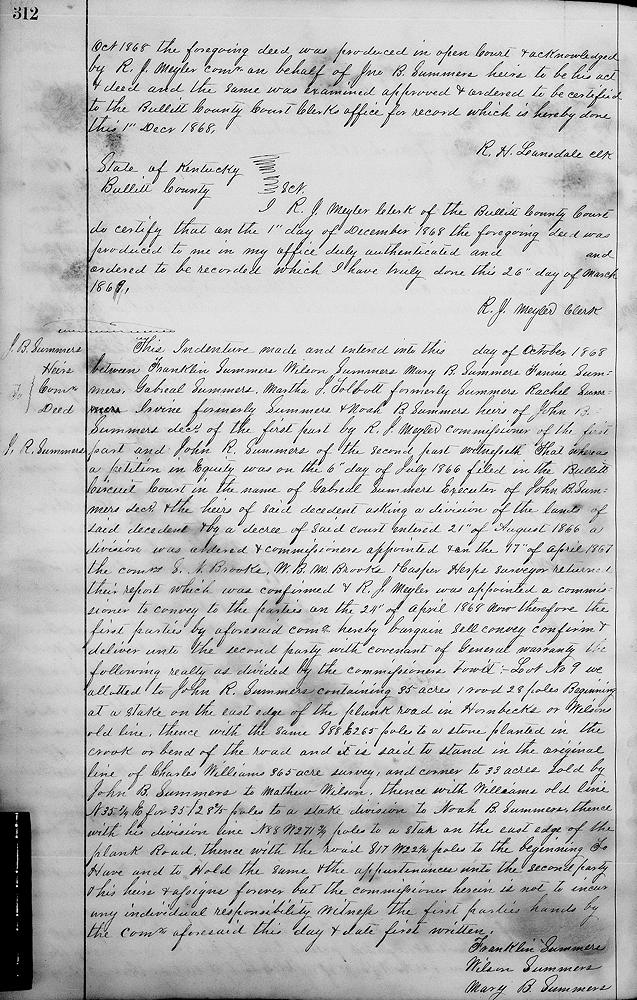 312
Oct 1868 the foregoing deed was produced in open Court & acknowledged
by R. J. Meyler comr on behalf of Jno B. Summers heirs to be his act
& deed and the same was examined approved & ordered to be certified
to the Bullitt County Court Clerks office for record which is hereby done
this 1" Decr 1868,
R. H. Lonsdale clk
State of Kentucky
Bullitt County Sct.
I R. J. Meyler Clerk of the Bullitt County Court
do certify that on the 1" day of December 1868 the foregoing deed was
produced to me in my office duly authenticated and and
ordered to be recorded which I have truly done this 26" day of March
1869,
R. J. Meyler Clerk
J. B. Summers
Heirs
By Comr
Deed
J. R. Summers
This Indenture made and entered into this day of October 1868
between Franklin Summers Wilson Summers Mary B. Summers Fannie Sum-
mers, Gabreal Summers, Martha J. Tolbott formerly Summers Rachel Summ-
mers Irvine formerly Summers & Noah B. Summers heirs of John B
Summers decd of the first part by R. J. Meyler commissioner of the first
part and John R. Summers of the second part witnesseth That whereas
a petition in Equity was on the 6" day of July 1866 filed in the Bullitt
Circuit Court in the name of Gabreal Summers Executer of John B. Sum-
mers decd & the heirs of said decedent asking a division of the lands of
said decedent & by a decree of said court entered 21" of August 1866 a
division was ordered & commissioners appointed & on the 17" of April 1867
the comrs S. N. Brooks, W. B. M. Brooks Casper Herps surveyor returned
their report which was confirmed & R. J. Meyler was appointed a commis-
sioner to convey to the parties on the 24" of April 1868 Now therefore the
first parties by aforesaid comr hereby bargain sell convey confirm &
deliver unto the second party with covenant of General warranty the
following realty as divided by the commissioners towit:- Lot No 9 we
allotted to John R. Summers containing 85 acres 1 rood 28 poles Beginning
at a stake on the east edge of the plunk road in Hornbecks or Wilsons
old line, thence with the same S88 E265 poles to a stone planted in the
crook or bend of the road and it is said to stand in the original
line of Charles Williams 865 acre survey, and corner to 33 acres sold by
John B. Summers to Mathew Wilson, thence with Williams old line
N35¼ E for 35/28⅘ poles to a stake division to Noah B. Summers, thence
with his division line N88 W271¾ poles to a stak on the east edge of the
plank Road, thence with the road S17 W22½ poles to the beginning To
Have and to Hold the same & the appurtenances unto the second party
& his heirs & assigns forever but the commissioner herein is not to incur
any individual responsibility Witness the first parties hands by
the comr aforesaid this day & date first written,
Franklin Summers
Wilson Summers
Mary B. Summers